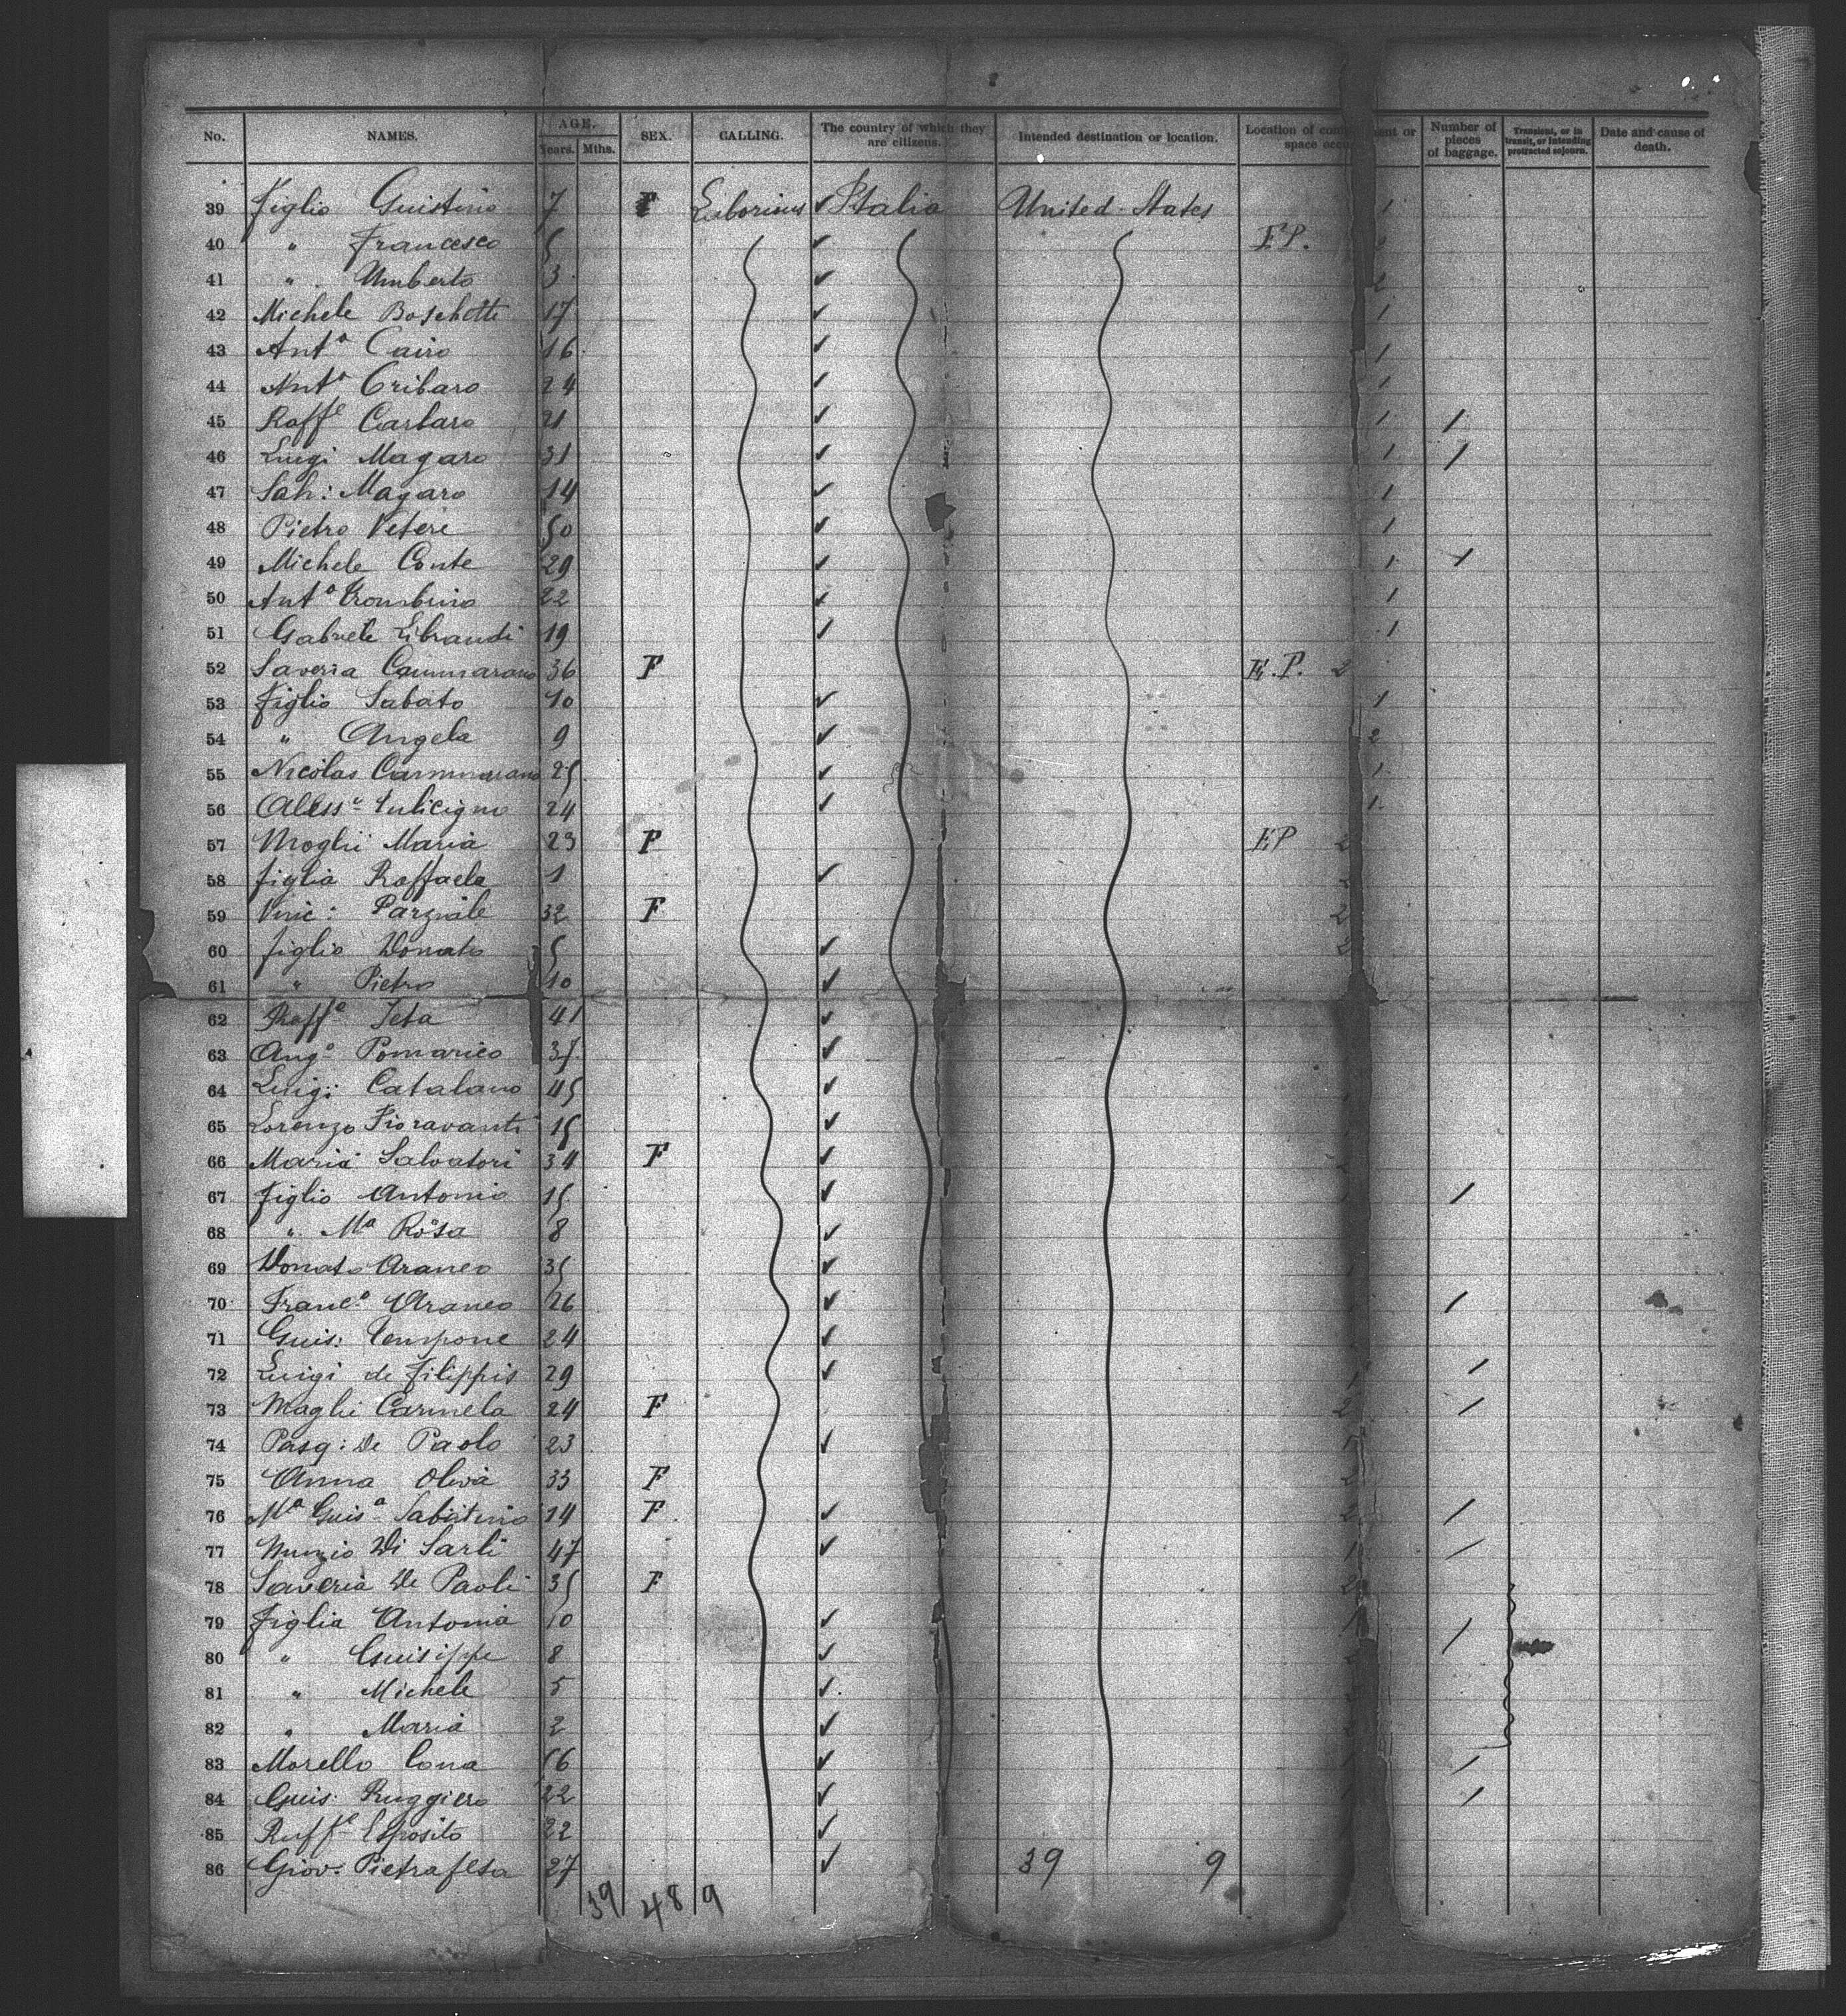 No. NAMES. AGE. Years. Mths. SEX. CALLING. The country of which they are citizens. Intended destination or location. Location of space Number of pieces of baggage. Transient, or in transit, or intending protracted sojourn. Date and cause of death.
39 Figlio Guistino 7 F Italia United States 1
40 " Francesco 5 E P.
41 " Umberto 3 2
42 Michele Boschetti 17 1
43 Antº Cairo 16 1
44 Antº Cribaro 24 1
45 Raffe Carbaro 21 1 /
46 Luigi Magaro 31 1 /
47 Salv: Magaro 14 1
48 Pietro Veteri 50 1
49 Michele Conte 29 1 /
50 Antº Trombino 22 1
51 Gabriele Librandi 19 1
52 Saveria Cammarano 36 F E.P. 2
53 Figlio Sabato 10 1
54 " Angela 9 2
55 Nicolas Cammarano 25 1
56 24 1
57 Moglii Maria 23 F EP 2
58 figlia Raffaela 1
59 Vinc: 32 F 2
60 figlio Donato 5 2
61 " Pietro 10
62 Raffº 41
63 Angº Pomarico 37
64 Luigi Catalano 45
65 Lorenzo Fioravanti 15
66 Maria Salvatori 34 F
67 figlio Antonio 15 /
68 " Mª Rosa 8
69 Donato Araneo 35
70 Francº Araneo 26 /
71 Guis: Tempone 24
72 Luigi de Filippis 29 /
73 Moglii Carmela 24 F 2 /
74 Pasq: De Paolo 23
75 Anna Oliva 33 F 2
76 Mª Guisª 14 F 2 /
77 Nunzio Di Sarli 47 1 /
78 Saveria De Paoli 35 F 2
79 Figlia Antonia 10 /
80 " Guisippe 8
81 " Michele 5
82 " Maria 2
83 Morello 66 /
84 Guis: Ruggiero 22 /
85 Raffe Esposito 22
86 Giov: Pietrafesa 27 39 9
39 48 9